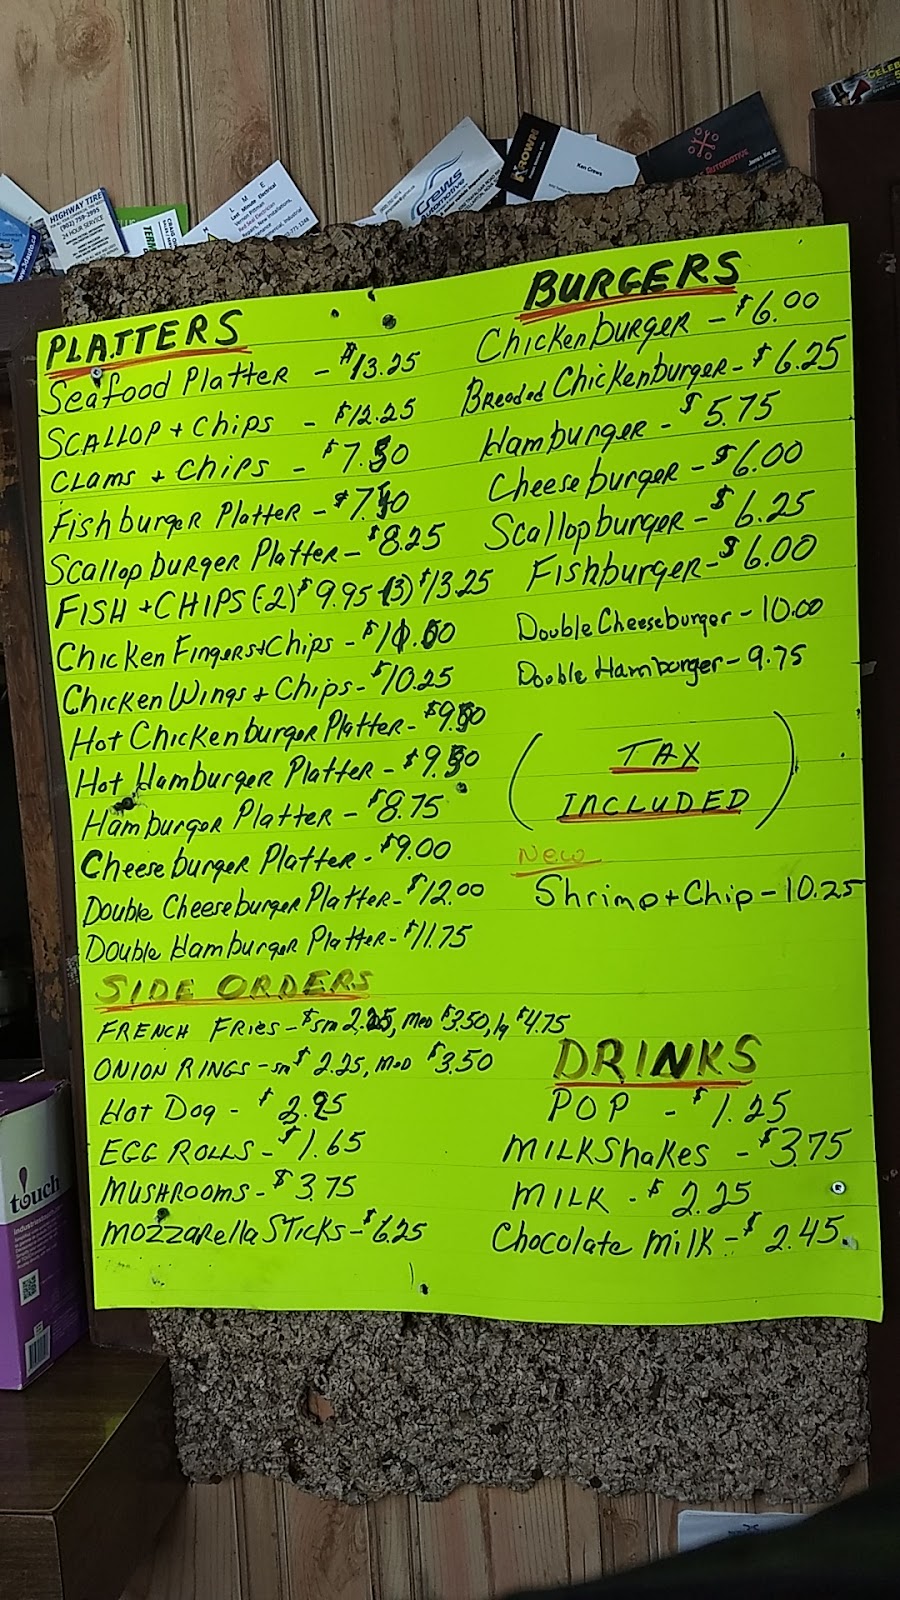 HIGHWAY TIRE
(902) 759-2995
24 HOUR SERVICE
L M E
Last Minute Electrical
Red Seal Electrician
CREWS
AUTOMOTIVE
KROWN
Ken Crews
AUTOMOTIVE
PLATTERS
Seafood Platter - $13.25
SCALLOP + Chips - $12.25
CLAMS + Chips - $7.50
Fishburger Platter - $7.50
Scallop burger Platter - $8.25
FISH + CHIPS (2) $9.95 (3) $13.25
Chicken Fingers + Chips - $10.50
Chicken Wings + Chips - $10.25
Hot Chickenburger Platter - $9.50
Hot Hamburger Platter - $9.50
Hamburger Platter - $8.75
Cheeseburger Platter - $9.00
Double Cheeseburger Platter - $12.00
Double Hamburger Platter - $11.75
SIDE ORDERS
FRENCH FRies - $sm 2.25, med $3.50, lg $4.75
ONION RINGS - sm $2.25, med $3.50
Hot Dog - $2.95
EGG ROLLS - $1.65
MUSHROOMS - $3.75
MOZZARella STicks - $6.25
BURGERS
ChickenBurger - $6.00
Breaded Chickenburger - $6.25
Hamburger - $5.75
Cheeseburger - $6.00
Scallopburger - $6.25
Fishburger - $6.00
Double Cheeseburger - 10.00
Double Hamburger - 9.75
(TAX
INCLUDED)
New
Shrimp + Chip - 10.25
DRINKS
POP - $1.25
MILKShakes - $3.75
MILK - $2.25
Chocolate milk - $2.45
touch